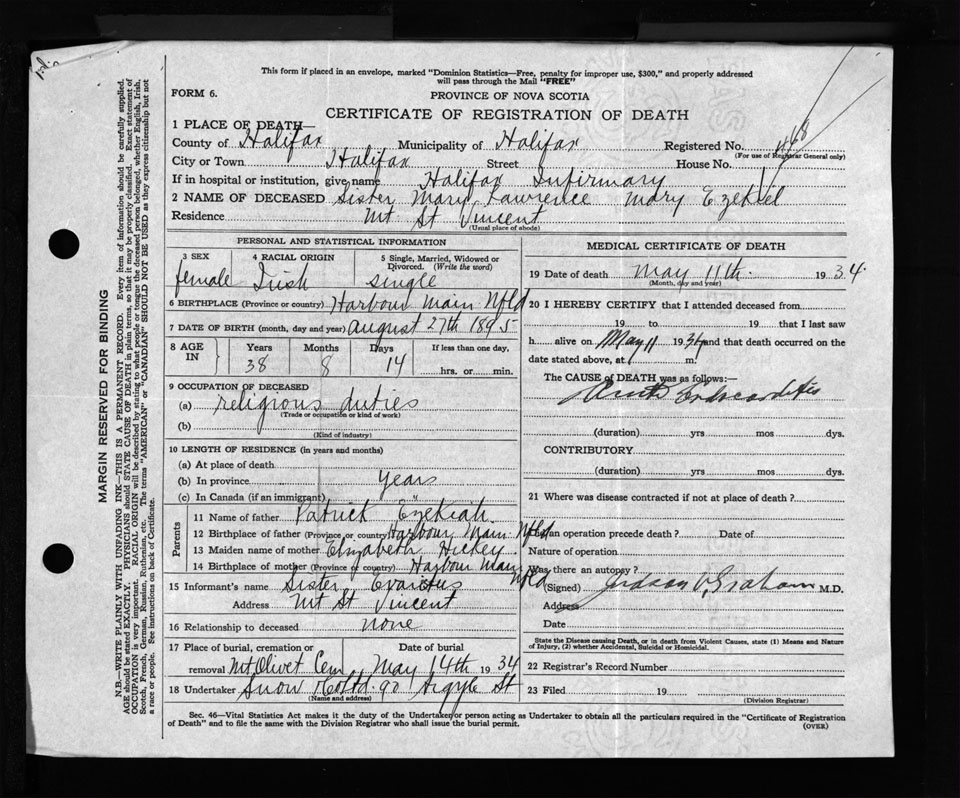 This form if placed in an envelope, marked "Dominion Statistics—Free, penalty for improper use, $300," and properly addressed
will pass through the Mail "FREE"
FORM 6.
PROVINCE OF NOVA SCOTIA
CERTIFICATE OF REGISTRATION OF DEATH
1 PLACE OF DEATH—
County of Halifax Municipality of Halifax Registered No. 468
(For use of Registrar General only)
City or Town Halifax Street House No.
If in hospital or institution, give name Halifax Infirmary
2 NAME OF DECEASED Sister Mary Lawrence Mary Ezekiel
Residence Mt St Vincent
(Usual place of abode)
PERSONAL AND STATISTICAL INFORMATION
3 SEX female
4 RACIAL ORIGIN Irish
5 Single, Married, Widowed or
Divorced. (Write the word)
single
6 BIRTHPLACE (Province or country) Harbour Main Nfld
7 DATE OF BIRTH (month, day and year) August 27th 1895
8 AGE IN
Years Months Days If less than one day,
38 8 14 hrs. or min.
9 OCCUPATION OF DECEASED
(a) religious duties
(Trade or occupation or kind of work)
(b)
(Kind of industry)
10 LENGTH OF RESIDENCE (in years and months)
(a) At place of death
(b) In province years
(c) In Canada (if an immigrant)
Parents
11 Name of father Patrick Ezekiah
12 Birthplace of father (Province or country) Harbour Main Nfld
13 Maiden name of mother Elizabeth Hickey
14 Birthplace of mother (Province or country) Harbour Main Nfld
15 Informant's name Sister Evarictus
Address Mt St Vincent
16 Relationship to deceased none
17 Place of burial, cremation or Date of burial
removal Mt Olivet Cem May 14th 1934
18 Undertaker Snow & Co Ltd. 90 Argyle St
(Name and address)
MEDICAL CERTIFICATE OF DEATH
19 Date of death May 11th. 1934.
(Month, day and year)
20 I HEREBY CERTIFY that I attended deceased from
19 to 19 that I last saw
h alive on May 11 1934 and that death occurred on the
date stated above, at m.
The CAUSE of DEATH was as follows:—
Acute Endocarditis
(duration) yrs mos dys.
CONTRIBUTORY
(duration) yrs mos dys.
21 Where was disease contracted if not at place of death?
an operation precede death? Date of
Nature of operation
Was there an autopsy?
(Signed) Judson V. Graham M.D.
Address
Date
State the Disease causing Death, or in death from Violent Causes, state (1) Means and Nature
of Injury, (2) whether Accidental, Suicidal or Homicidal.
22 Registrar's Record Number
23 Filed 19
(Division Registrar)
Sec. 46—Vital Statistics Act makes it the duty of the Undertaker or person acting as Undertaker to obtain all the particulars required in the "Certificate of Registration
of Death" and to file the same with the Division Registrar who shall issue the burial permit.
(OVER)
MARGIN RESERVED FOR BINDING
N.B.—WRITE PLAINLY WITH UNFADING INK—THIS IS A PERMANENT RECORD. Every item of information should be carefully supplied.
AGE should be stated EXACTLY. PHYSICIANS should STATE CAUSE OF DEATH in plain terms, so that it may be properly classified. Exact statement of
OCCUPATION is very important. RACIAL ORIGIN will be described by stating to what people or tongue the deceased person belonged, whether English, Irish,
Scotch, French, German, Russian, Ruthenian, etc. The terms "AMERICAN" or "CANADIAN" SHOULD NOT BE USED as they express citizenship but not
a race or people. See instructions on back of Certificate.